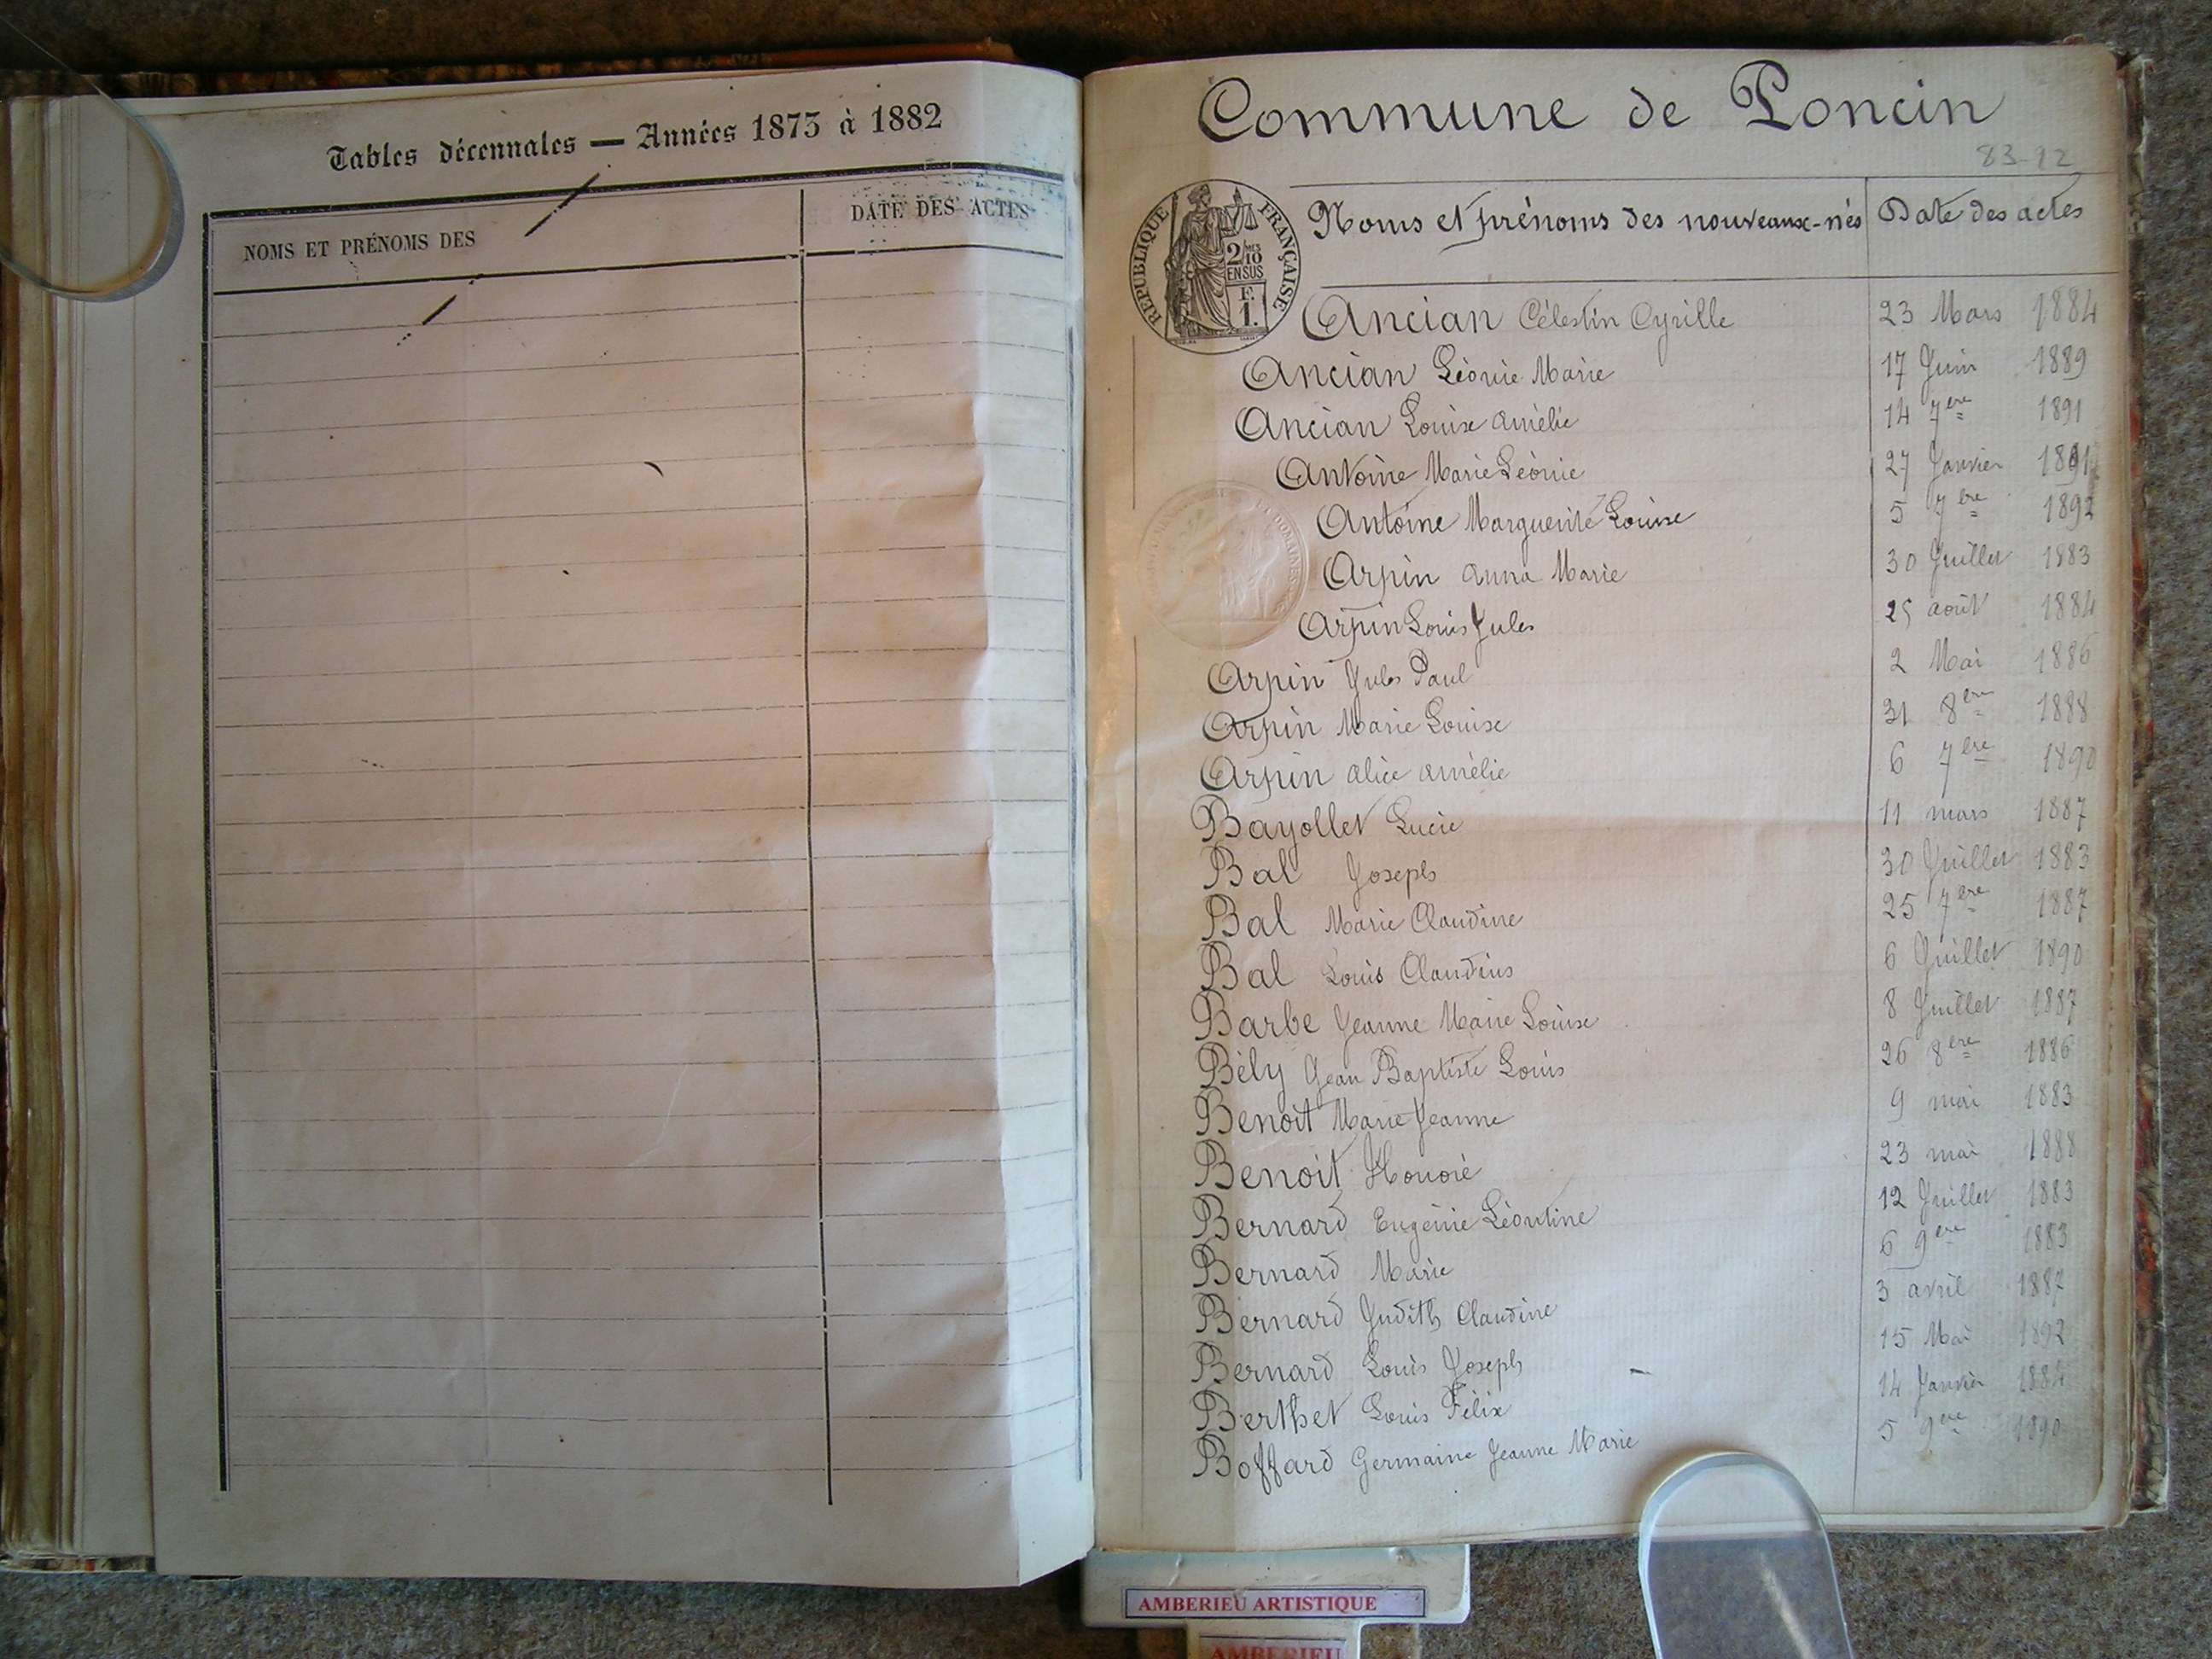 Tables décennales — Années 1873 à 1882
NOMS ET PRÉNOMS DES
DATE DES ACTES
Commune de Poncin
83-92
RÉPUBLIQUE FRANÇAISE
2/10 MES
EN SUS
F.
1.
Noms et prénoms des nouveaux-nés Date des actes
Ancian Célestin Cyrille 23 Mars 1884
Ancian Léonie Marie 17 Juin 1889
Ancian Louise Amélie 14 7ere 1891
Antoine Marie Léonie 27 Janvier 1891
Antoine Marguerite Louise 5 7bre 1892
Arpin Anna Marie 30 Juillet 1883
Arpin Louis Jules 25 août 1884
Arpin Jules Paul 2 Mai 1886
Arpin Marie Louise 31 8ere 1888
Arpin Alice Amélie 6 7ere 1890
Bayollet Lucie 11 mars 1887
Bal Joseph 30 Juillet 1883
Bal Marie Claudine 25 7ere 1887
Bal Louis Claudius 6 Juillet 1890
Barbe Jeanne Marie Louise 8 Juillet 1887
Bély Jean Baptiste Louis 26 8ere 1886
Benoit Marie Jeanne 9 mai 1883
Benoit Honoré 23 mai 1888
Bernard Eugénie Léontine 12 Juillet 1883
Bernard Marie 6 9ere 1883
Bernard Judith Claudine 3 avril 1887
Bernard Louis Joseph 15 Mai 1892
Berthet Louis Félix 14 Janvier 1884
Boffard Germaine Jeanne Marie 5 9ere 1890
AMBERIEU ARTISTIQUE
AMBERIEU